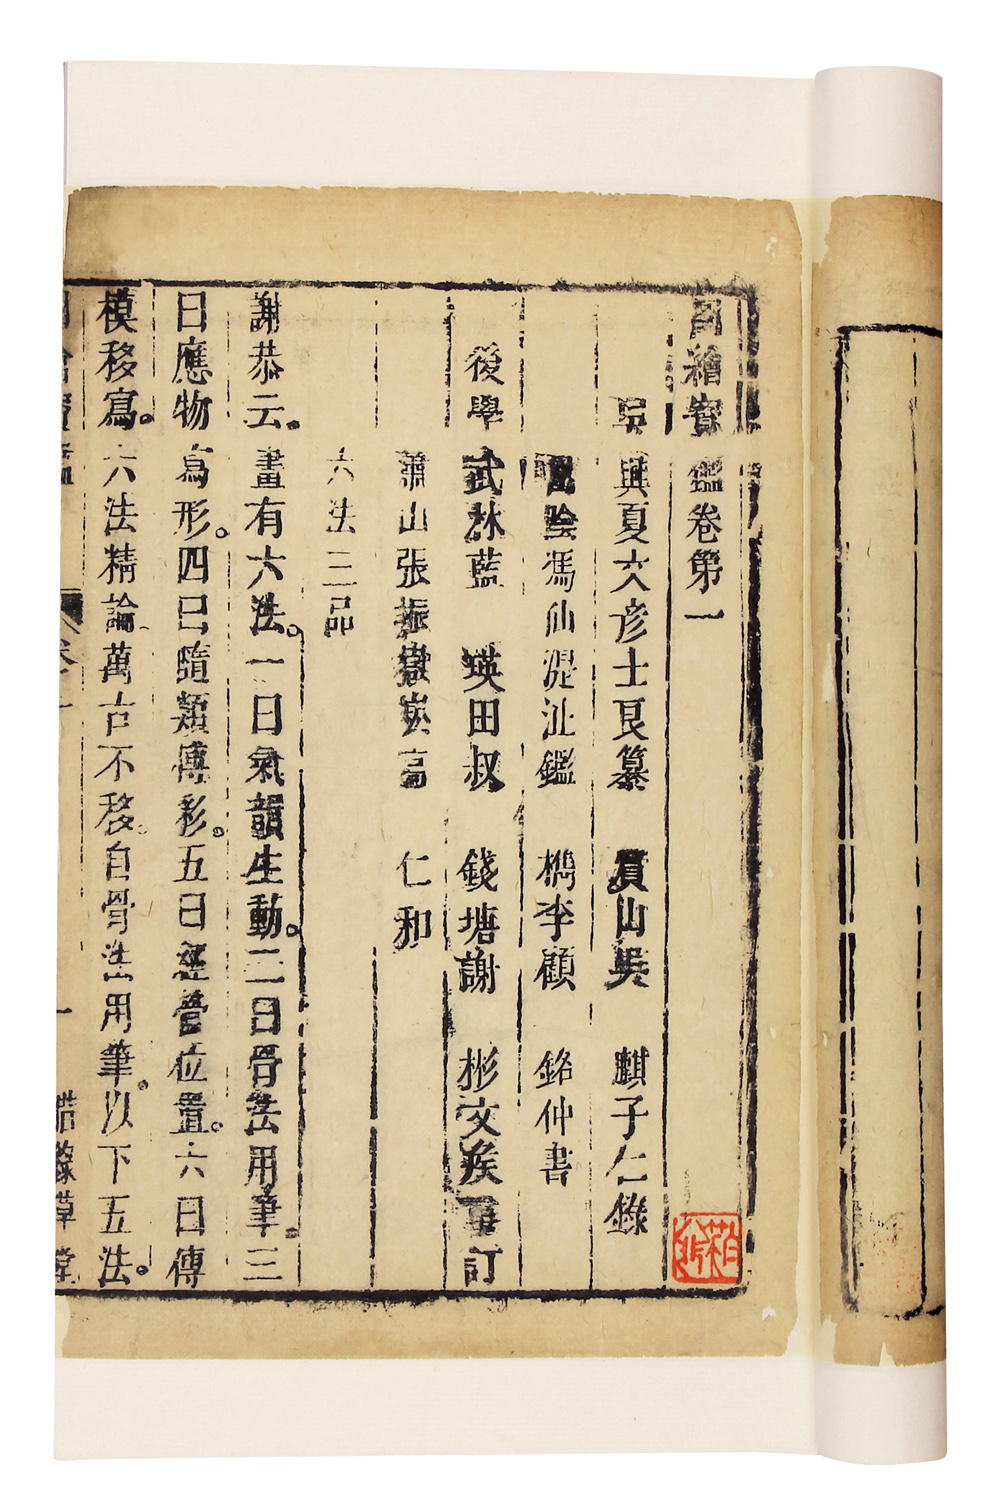 圖繪寶鑑卷第一
吳興夏文彥士良纂 眞山吳 麒子仁錄
山陰馮仙湜沚鑑 檇李顧 銘仲書
後學武林藍 瑛田叔 錢塘謝 彬文侯重訂
蕭山張振嶽崧高 仁和
六法三品
謝恭云。畫有六法。一曰氣韻生動。二曰骨法用筆。三
曰應物寫形。四曰隨類傅彩。五曰經營位置。六曰傳
模移寫。六法精論、萬古不移。自骨法用筆。以下五法。
圖繪寶鑑 卷一 一 借綠草堂